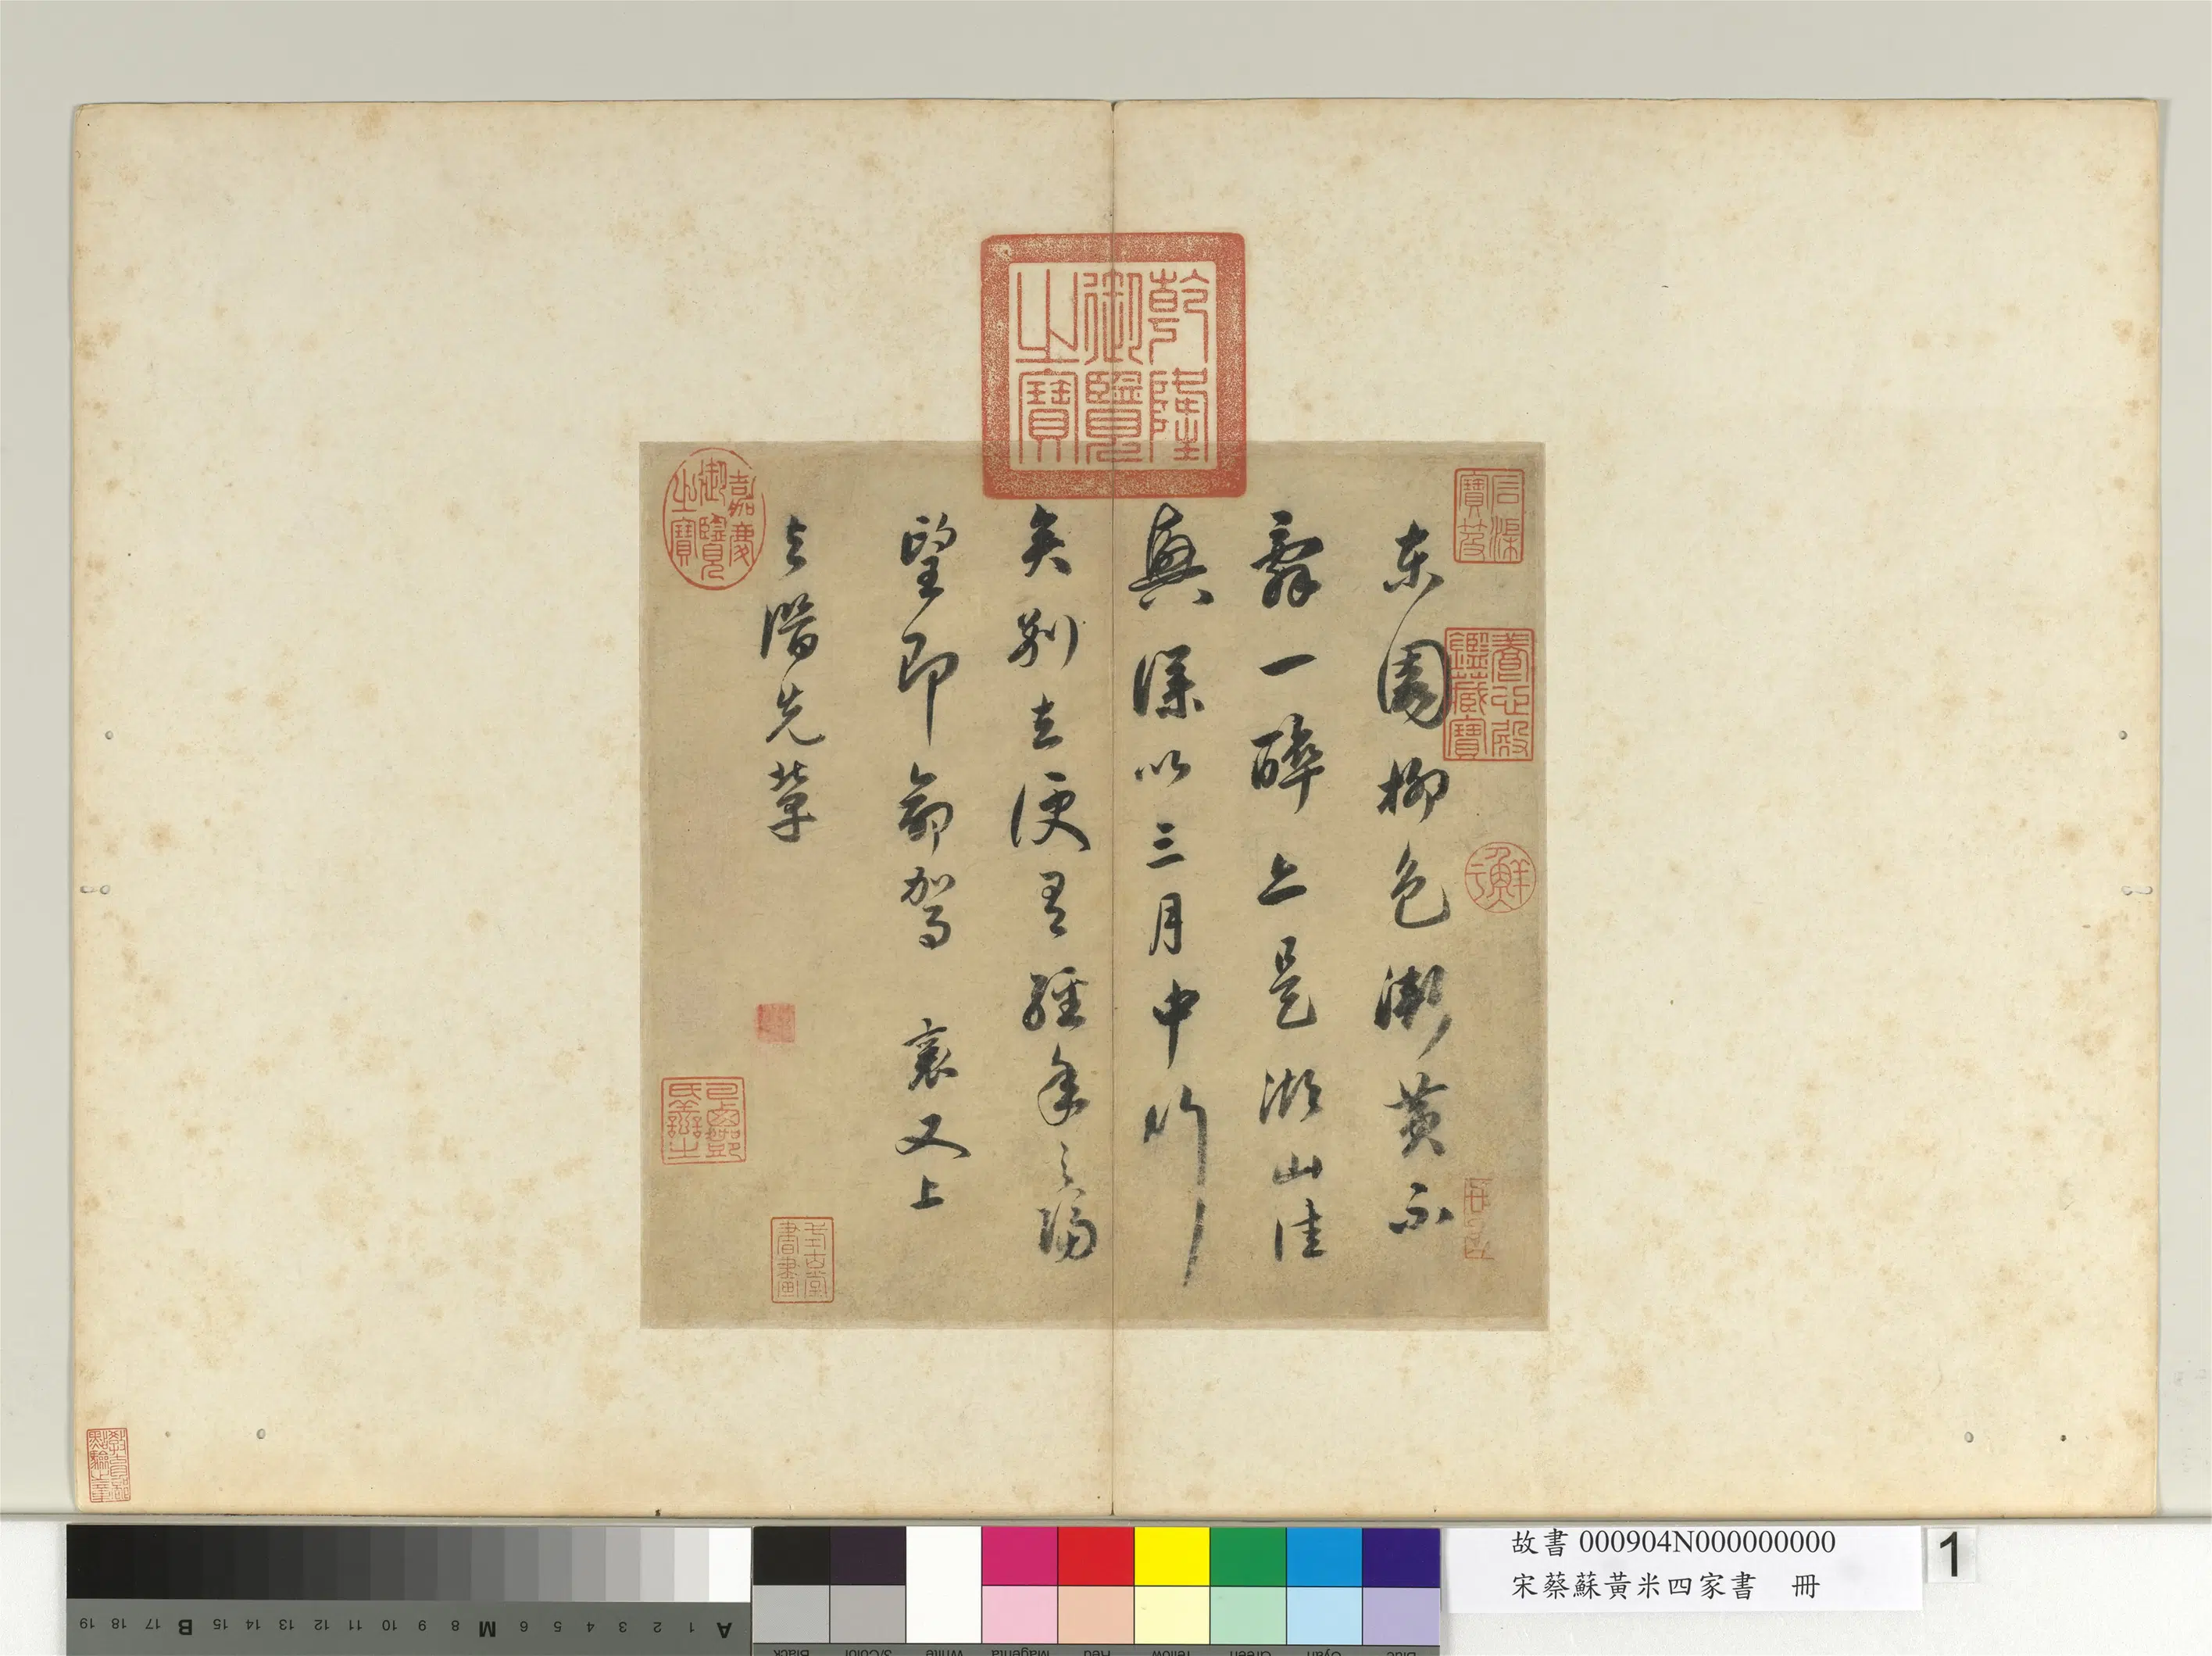 東園柳色漸黃不
辭一醉上是湖山佳
興深以三月中行
矣别去便是經年之隔
望即命駕 襄又上
大諧先輩
乾隆
御覽
之寶
嘉慶
御覽
之寶
石渠
寶笈
養心殿
鑑藏寶
鮮
書畫
故書 000904N000000000
宋蔡蘇黃米四家書 冊
1
A 1 2 3 4 5 6 M 8 9 10 11 12 13 14 15 B 17 18 19
Black 3/Color White Magenta Red Yellow Green Cyan Blue